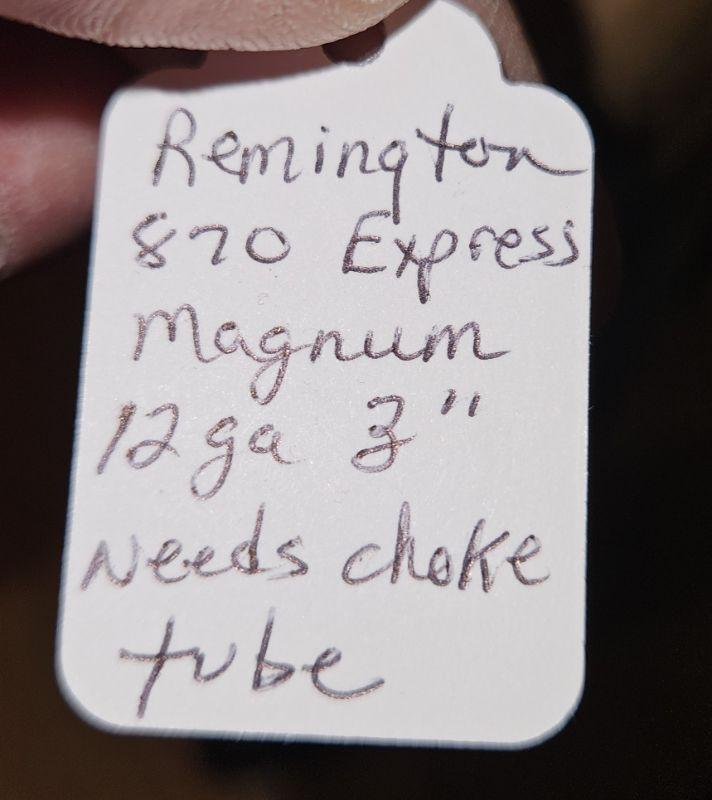 Remington
870 Express
Magnum
12ga 3"
Needs choke
tube